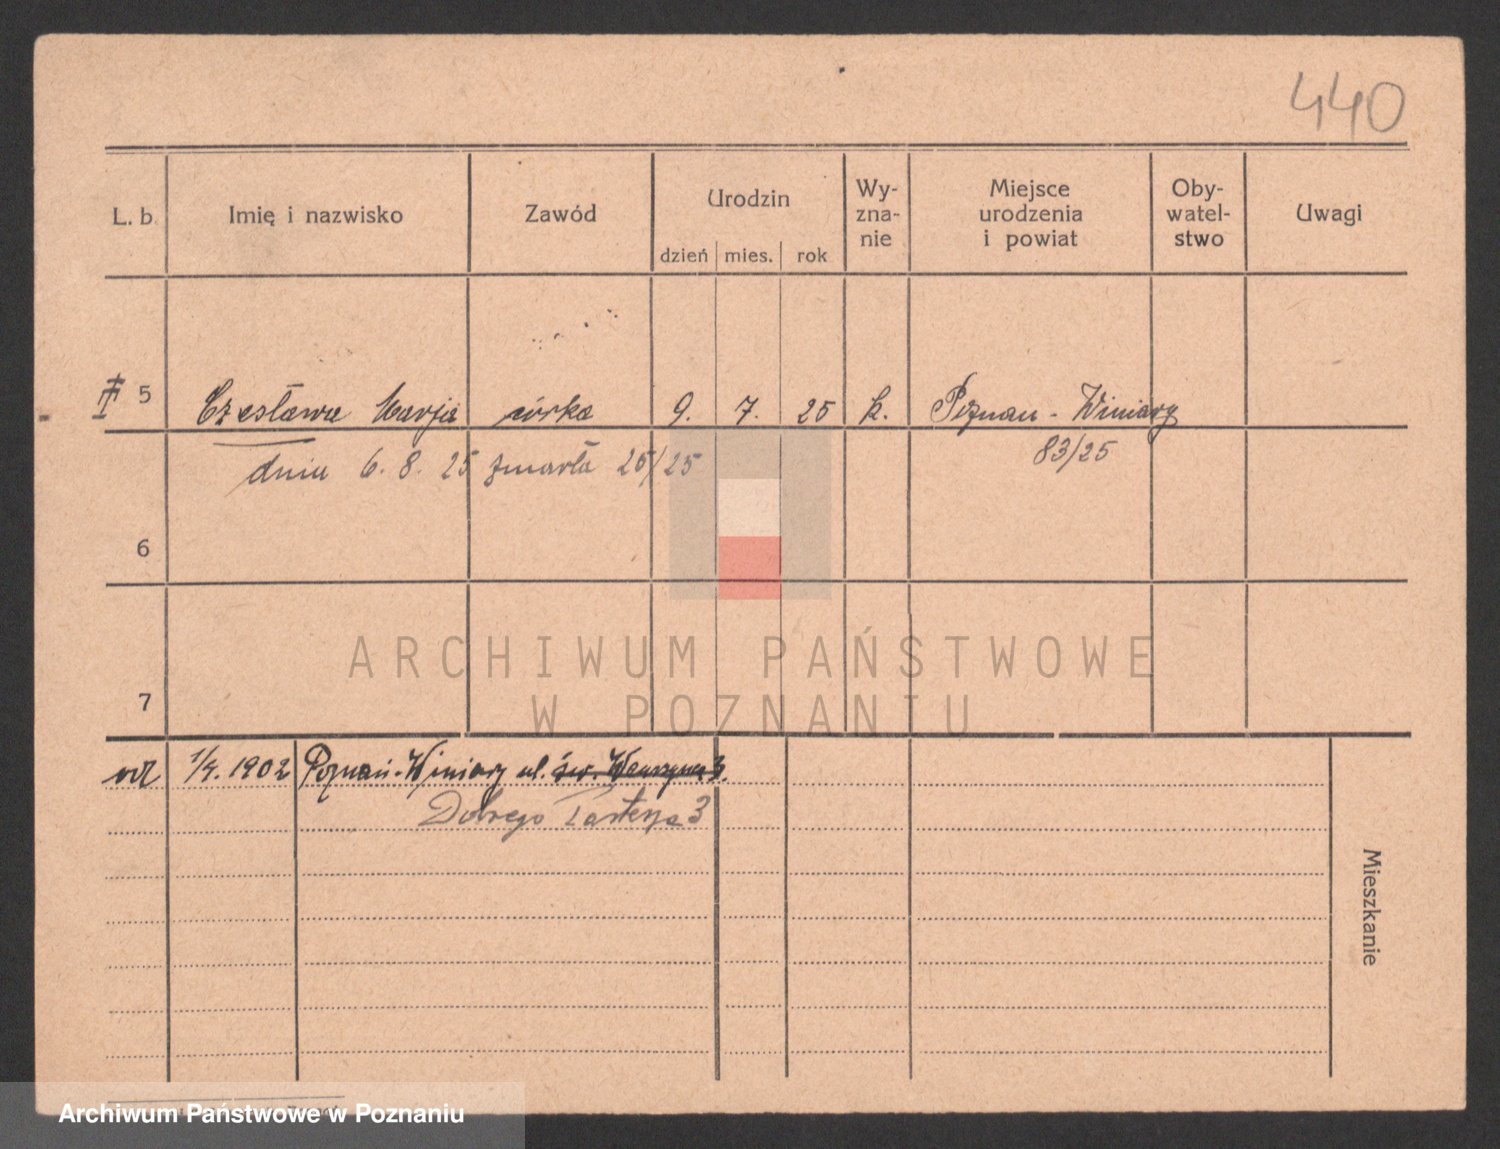 440
L. b. Imię i nazwisko Zawód Urodzin Wy- zna- nie Miejsce urodzenia i powiat Oby- watel- stwo Uwagi
dzień mies. rok
5 Czesława Marja córka 9. 7. 25 k. Poznań - Winiary
dniu 6. 8. 25 zmarła 25/25 83/25
6
ARCHIWUM PAŃSTWOWE
W POZNANIU
7
od 1/4. 1902 Poznań-Winiary ul. św. Wawrzyńca 3.
Dobrego Pasterza 3
Mieszkanie
Archiwum Państwowe w Poznaniu